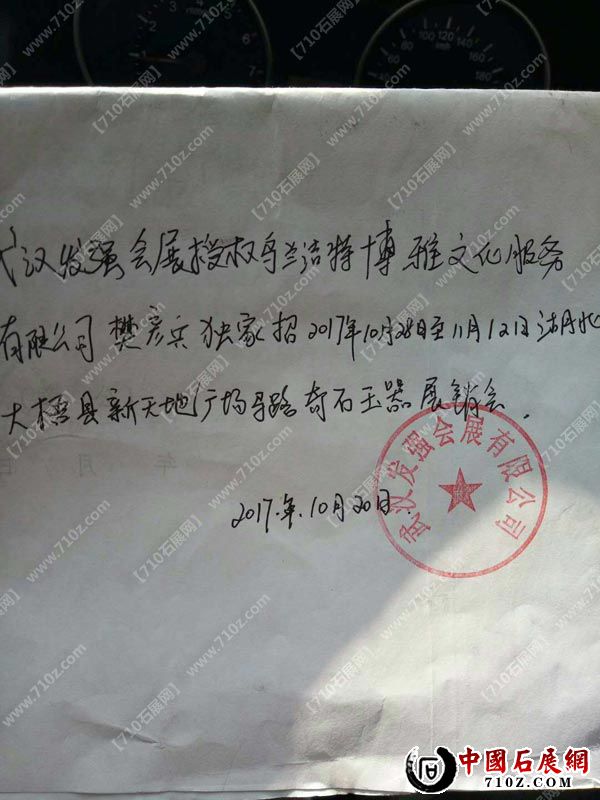 武汉发强会展授权乌兰浩特博雅文化服务
有限公司樊彦兵独家招2017年10月28日至11月12日湖北
大悟县新天地广场马路奇石玉器展销会.
2017.年.10月20日.
武汉发强会展有限公司
中國石展網
www.710z.com
【710石展网】
www.710z.com